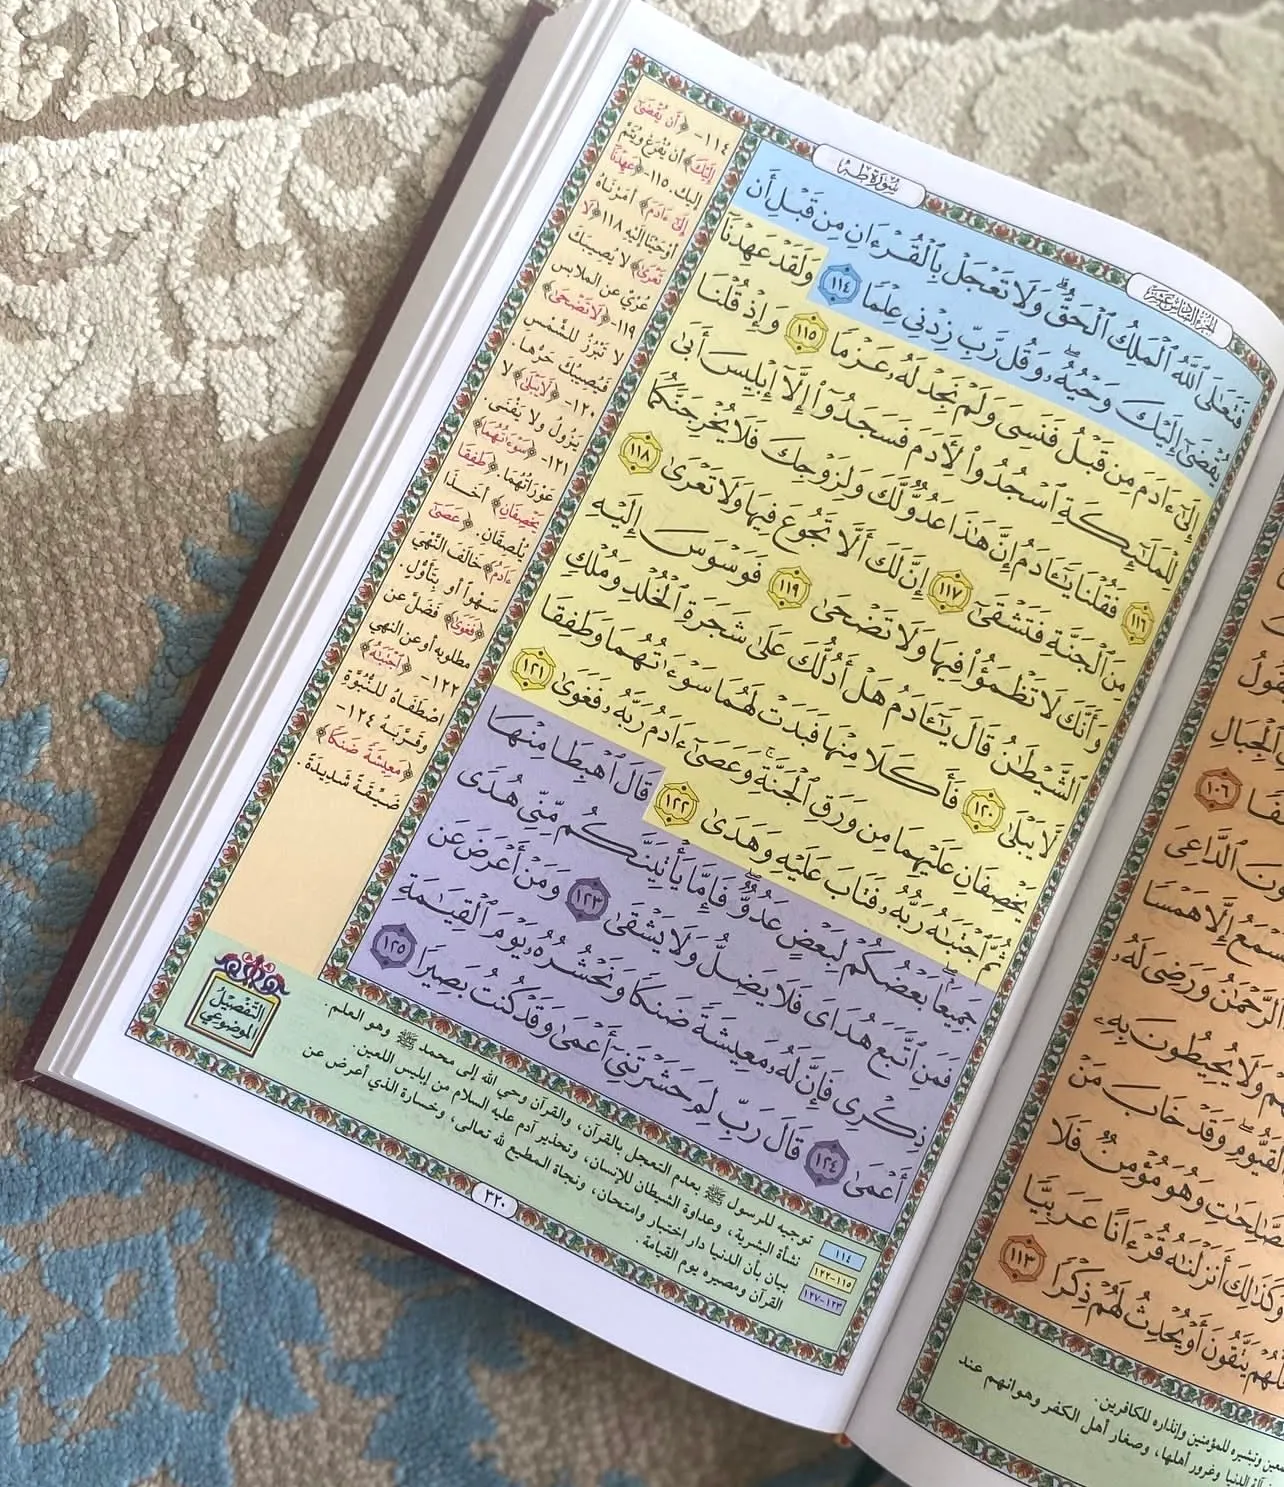 الجزء السادس عشر
سورة طه
فَتَعَٰلَى ٱللَّهُ ٱلْمَلِكُ ٱلْحَقُّ ۗ وَلَا تَعْجَلْ بِٱلْقُرْءَانِ مِن قَبْلِ أَن
يُقْضَىٰٓ إِلَيْكَ وَحْيُهُۥ ۖ وَقُل رَّبِّ زِدْنِى عِلْمًا ١١٤ وَلَقَدْ عَهِدْنَآ
إِلَىٰٓ ءَادَمَ مِن قَبْلُ فَنَسِىَ وَلَمْ نَجِدْ لَهُۥ عَزْمًا ١١٥ وَإِذْ قُلْنَا
لِلْمَلَٰٓئِكَةِ ٱسْجُدُوا۟ لِءَادَمَ فَسَجَدُوٓا۟ إِلَّآ إِبْلِيسَ أَبَىٰ
١١٦ فَقُلْنَا يَٰٓـَٔادَمُ إِنَّ هَٰذَا عَدُوٌّ لَّكَ وَلِزَوْجِكَ فَلَا يُخْرِجَنَّكُمَا
مِنَ ٱلْجَنَّةِ فَتَشْقَىٰٓ ١١٧ إِنَّ لَكَ أَلَّا تَجُوعَ فِيهَا وَلَا تَعْرَىٰ ١١٨
وَأَنَّكَ لَا تَظْمَؤُا۟ فِيهَا وَلَا تَضْحَىٰ ١١٩ فَوَسْوَسَ إِلَيْهِ
ٱلشَّيْطَٰنُ قَالَ يَٰٓـَٔادَمُ هَلْ أَدُلُّكَ عَلَىٰ شَجَرَةِ ٱلْخُلْدِ وَمُلْكٍ
لَّا يَبْلَىٰ ١٢٠ فَأَكَلَا مِنْهَا فَبَدَتْ لَهُمَا سَوْءَٰتُهُمَا وَطَفِقَا
يَخْصِفَانِ عَلَيْهِمَا مِن وَرَقِ ٱلْجَنَّةِ ۚ وَعَصَىٰٓ ءَادَمُ رَبَّهُۥ فَغَوَىٰ ١٢١
ثُمَّ ٱجْتَبَٰهُ رَبُّهُۥ فَتَابَ عَلَيْهِ وَهَدَىٰ ١٢٢ قَالَ ٱهْبِطَا مِنْهَا
جَمِيعًۢا ۖ بَعْضُكُمْ لِبَعْضٍ عَدُوٌّ ۖ فَإِمَّا يَأْتِيَنَّكُم مِّنِّى هُدًى
فَمَنِ ٱتَّبَعَ هُدَاىَ فَلَا يَضِلُّ وَلَا يَشْقَىٰ ١٢٣ وَمَنْ أَعْرَضَ عَن
ذِكْرِى فَإِنَّ لَهُۥ مَعِيشَةً ضَنكًا وَنَحْشُرُهُۥ يَوْمَ ٱلْقِيَٰمَةِ
أَعْمَىٰ ١٢٤ قَالَ رَبِّ لِمَ حَشَرْتَنِىٓ أَعْمَىٰ وَقَدْ كُنتُ بَصِيرًا ١٢٥
١١٤- ﴿أَن يُقْضَىٰٓ
إِلَيْكَ﴾ أن يُفْرَغَ ويُتَمَّ
إليك. ١١٥- ﴿عَهِدْنَآ
إِلَىٰٓ ءَادَمَ﴾ أمَرْنَاهُ
أوْحَيْنَا إلَيْه ١١٨ ﴿لَا
تَعْرَىٰ﴾ لا يُصيبكَ
عُرْيٌ عن الملابس
١١٩- ﴿لَا تَضْحَىٰ﴾
لا تَبْرُزُ للشَّمْس
فَتُصيبكَ حَرُّها
١٢٠- ﴿لَا يَبْلَىٰ﴾ لا
يَزُول ولا يَفْنَى
١٢١- ﴿سَوْءَٰتُهُمَا﴾
عَوْرَاتُهُمَا. ﴿طَفِقَا
يَخْصِفَانِ﴾ أخَذَا
يُلْصِقَان. ﴿عَصَىٰٓ
ءَادَمُ﴾ خَالَفَ النَّهْي
سهْواً أو بتَأوُّل.
﴿فَغَوَىٰ﴾ فَضَلَّ عن
مطلوبه أو عن النهي
١٢٢- ﴿ٱجْتَبَٰهُ﴾
اصْطَفَاهُ للنُّبُوَّة
وقرَّبَهُ ١٢٤-
﴿مَعِيشَةً ضَنكًا﴾
ضَيِّقَةً شَديدَة.
التفصيل
الموضوعي
١١٤
توجيه للرسول ﷺ بعدم التعجل بالقرآن، والقرآن وحي الله إلى محمد ﷺ وهو العلم.
١١٥-١٢٢
نشأة البشرية، وعداوة الشيطان للإنسان، وتحذير آدم عليه السلام من إبليس اللعين.
١٢٣-١٢٧
بيان بأن الدنيا دار اختبار وامتحان، ونجاة المطيع لله تعالى، وخسارة الذي أعرض عن
القرآن ومصيره يوم القيامة.
٣٢٠
١٠٦
ٱلدَّاعِىَ
إِلَّا هَمْسًا
ٱلرَّحْمَٰنُ وَرَضِىَ لَهُۥ
وَلَا يُحِيطُونَ بِهِۦ
ٱلْقَيُّومِ ۖ وَقَدْ خَابَ مَنْ
ٱلصَّٰلِحَٰتِ وَهُوَ مُؤْمِنٌ فَلَا
وَكَذَٰلِكَ أَنزَلْنَٰهُ قُرْءَانًا عَرَبِيًّا
يَتَّقُونَ أَوْ يُحْدِثُ لَهُمْ ذِكْرًا ١١٣
وتبشيره للمؤمنين وإنذاره للكافرين.
الدنيا وغرور أهلها، وصغار أهل الكفر وهوانهم عند